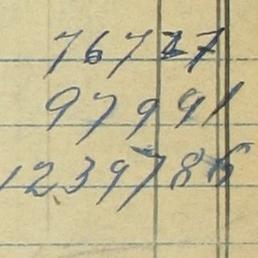 76727
97991
1239786